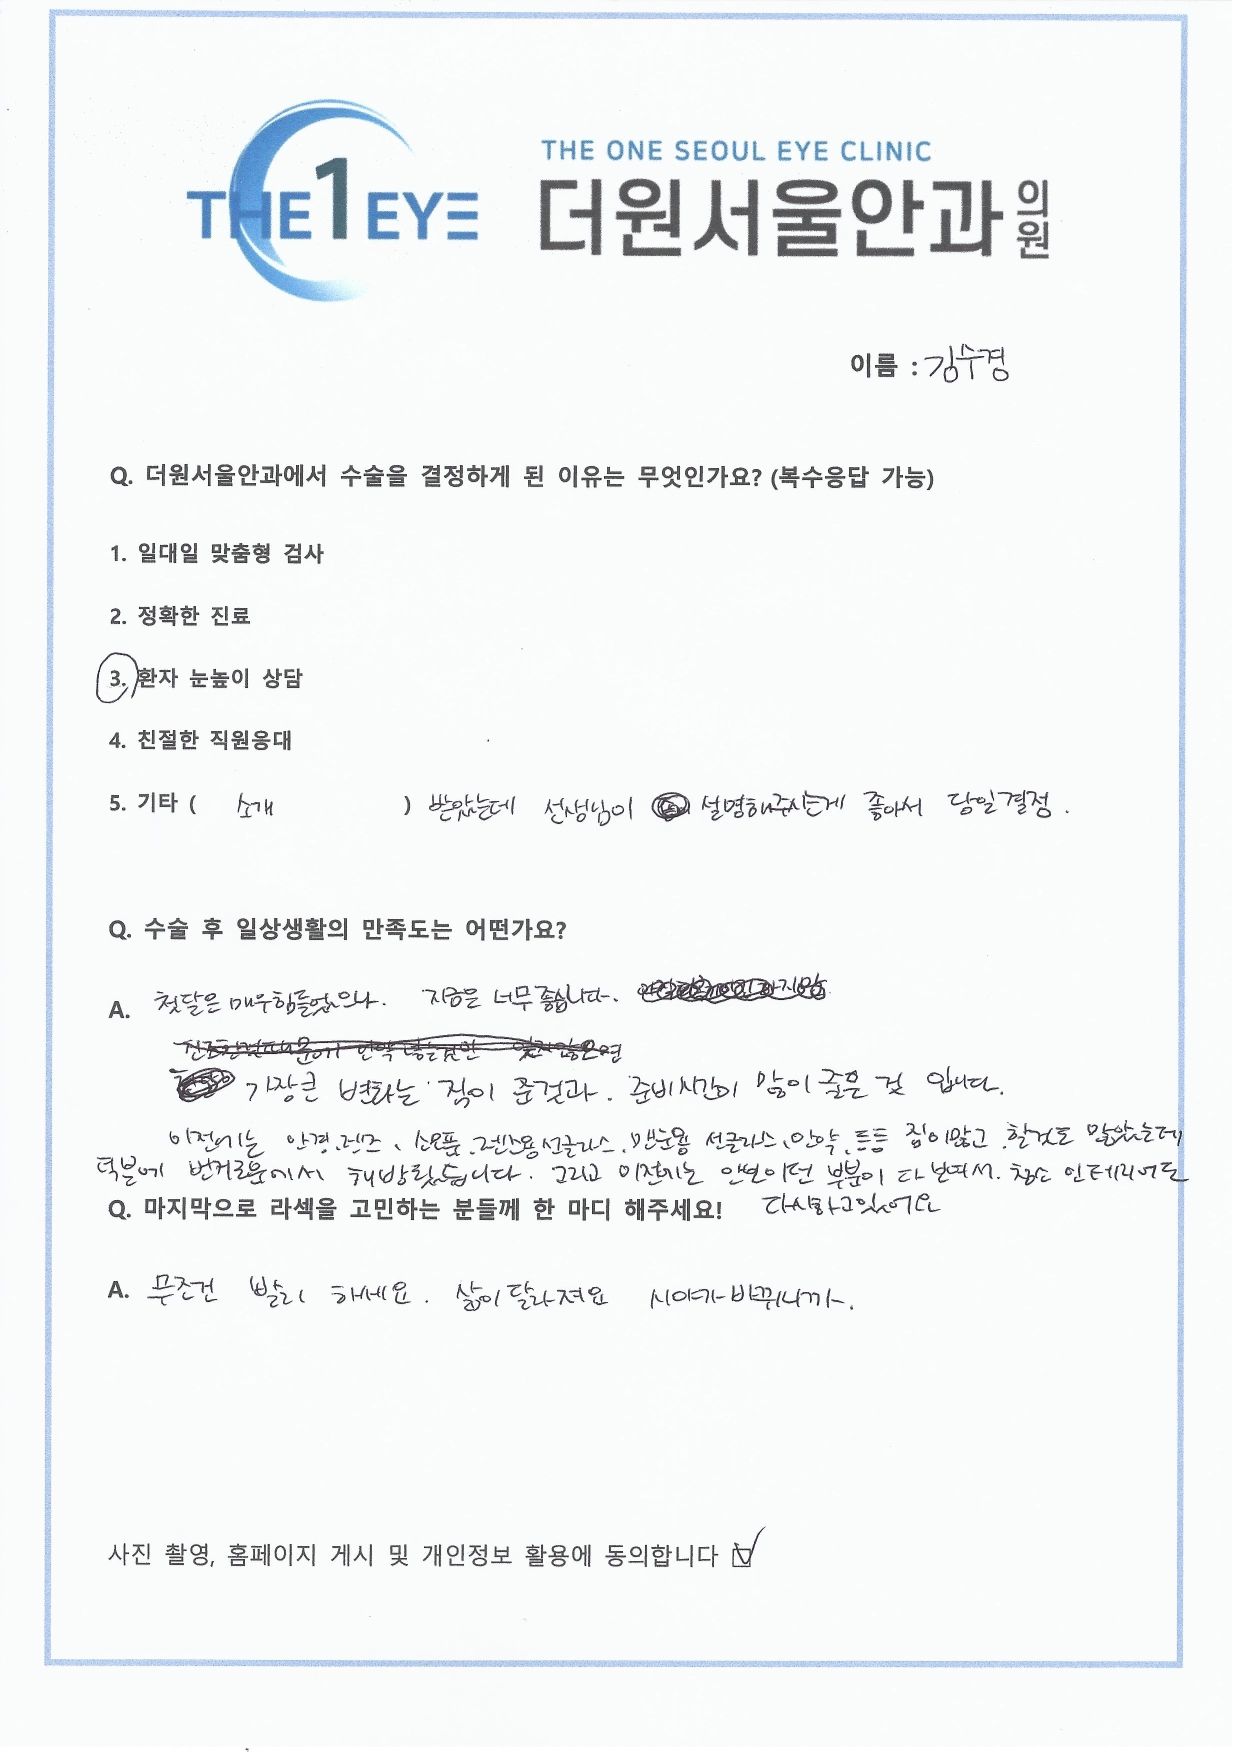 THE 1 EYE
THE ONE SEOUL EYE CLINIC
더원서울안과의원
이름 : 김수경
Q. 더원서울안과에서 수술을 결정하게 된 이유는 무엇인가요? (복수응답 가능)
1. 일대일 맞춤형 검사
2. 정확한 진료
3. 환자 눈높이 상담
4. 친절한 직원응대
5. 기타 ( 소개 ) 받았는데 선생님이 설명해주시는게 좋아서 당일결정.
Q. 수술 후 일상생활의 만족도는 어떤가요?
A. 첫달은 매우힘들었으나. 지금은 너무좋습니다.
가장큰 변화는 짐이 준것과. 준비시간이 많이 줄은 것 입니다.
이전에는 안경,렌즈, 소모품, 렌즈용선글라스, 맨눈용 선글라스, 안약, 등등 짐이많고 할것도 많았는데
덕분에 번거로움에서 해방됐습니다. 그리고 이전에는 안보이던 부분이 다 보여서. 청소 인테리어도
다시하고있어요
Q. 마지막으로 라섹을 고민하는 분들께 한 마디 해주세요!
A. 무조건 빨리 하세요. 삶이달라져요 시야가바뀌니까.
사진 촬영, 홈페이지 게시 및 개인정보 활용에 동의합니다